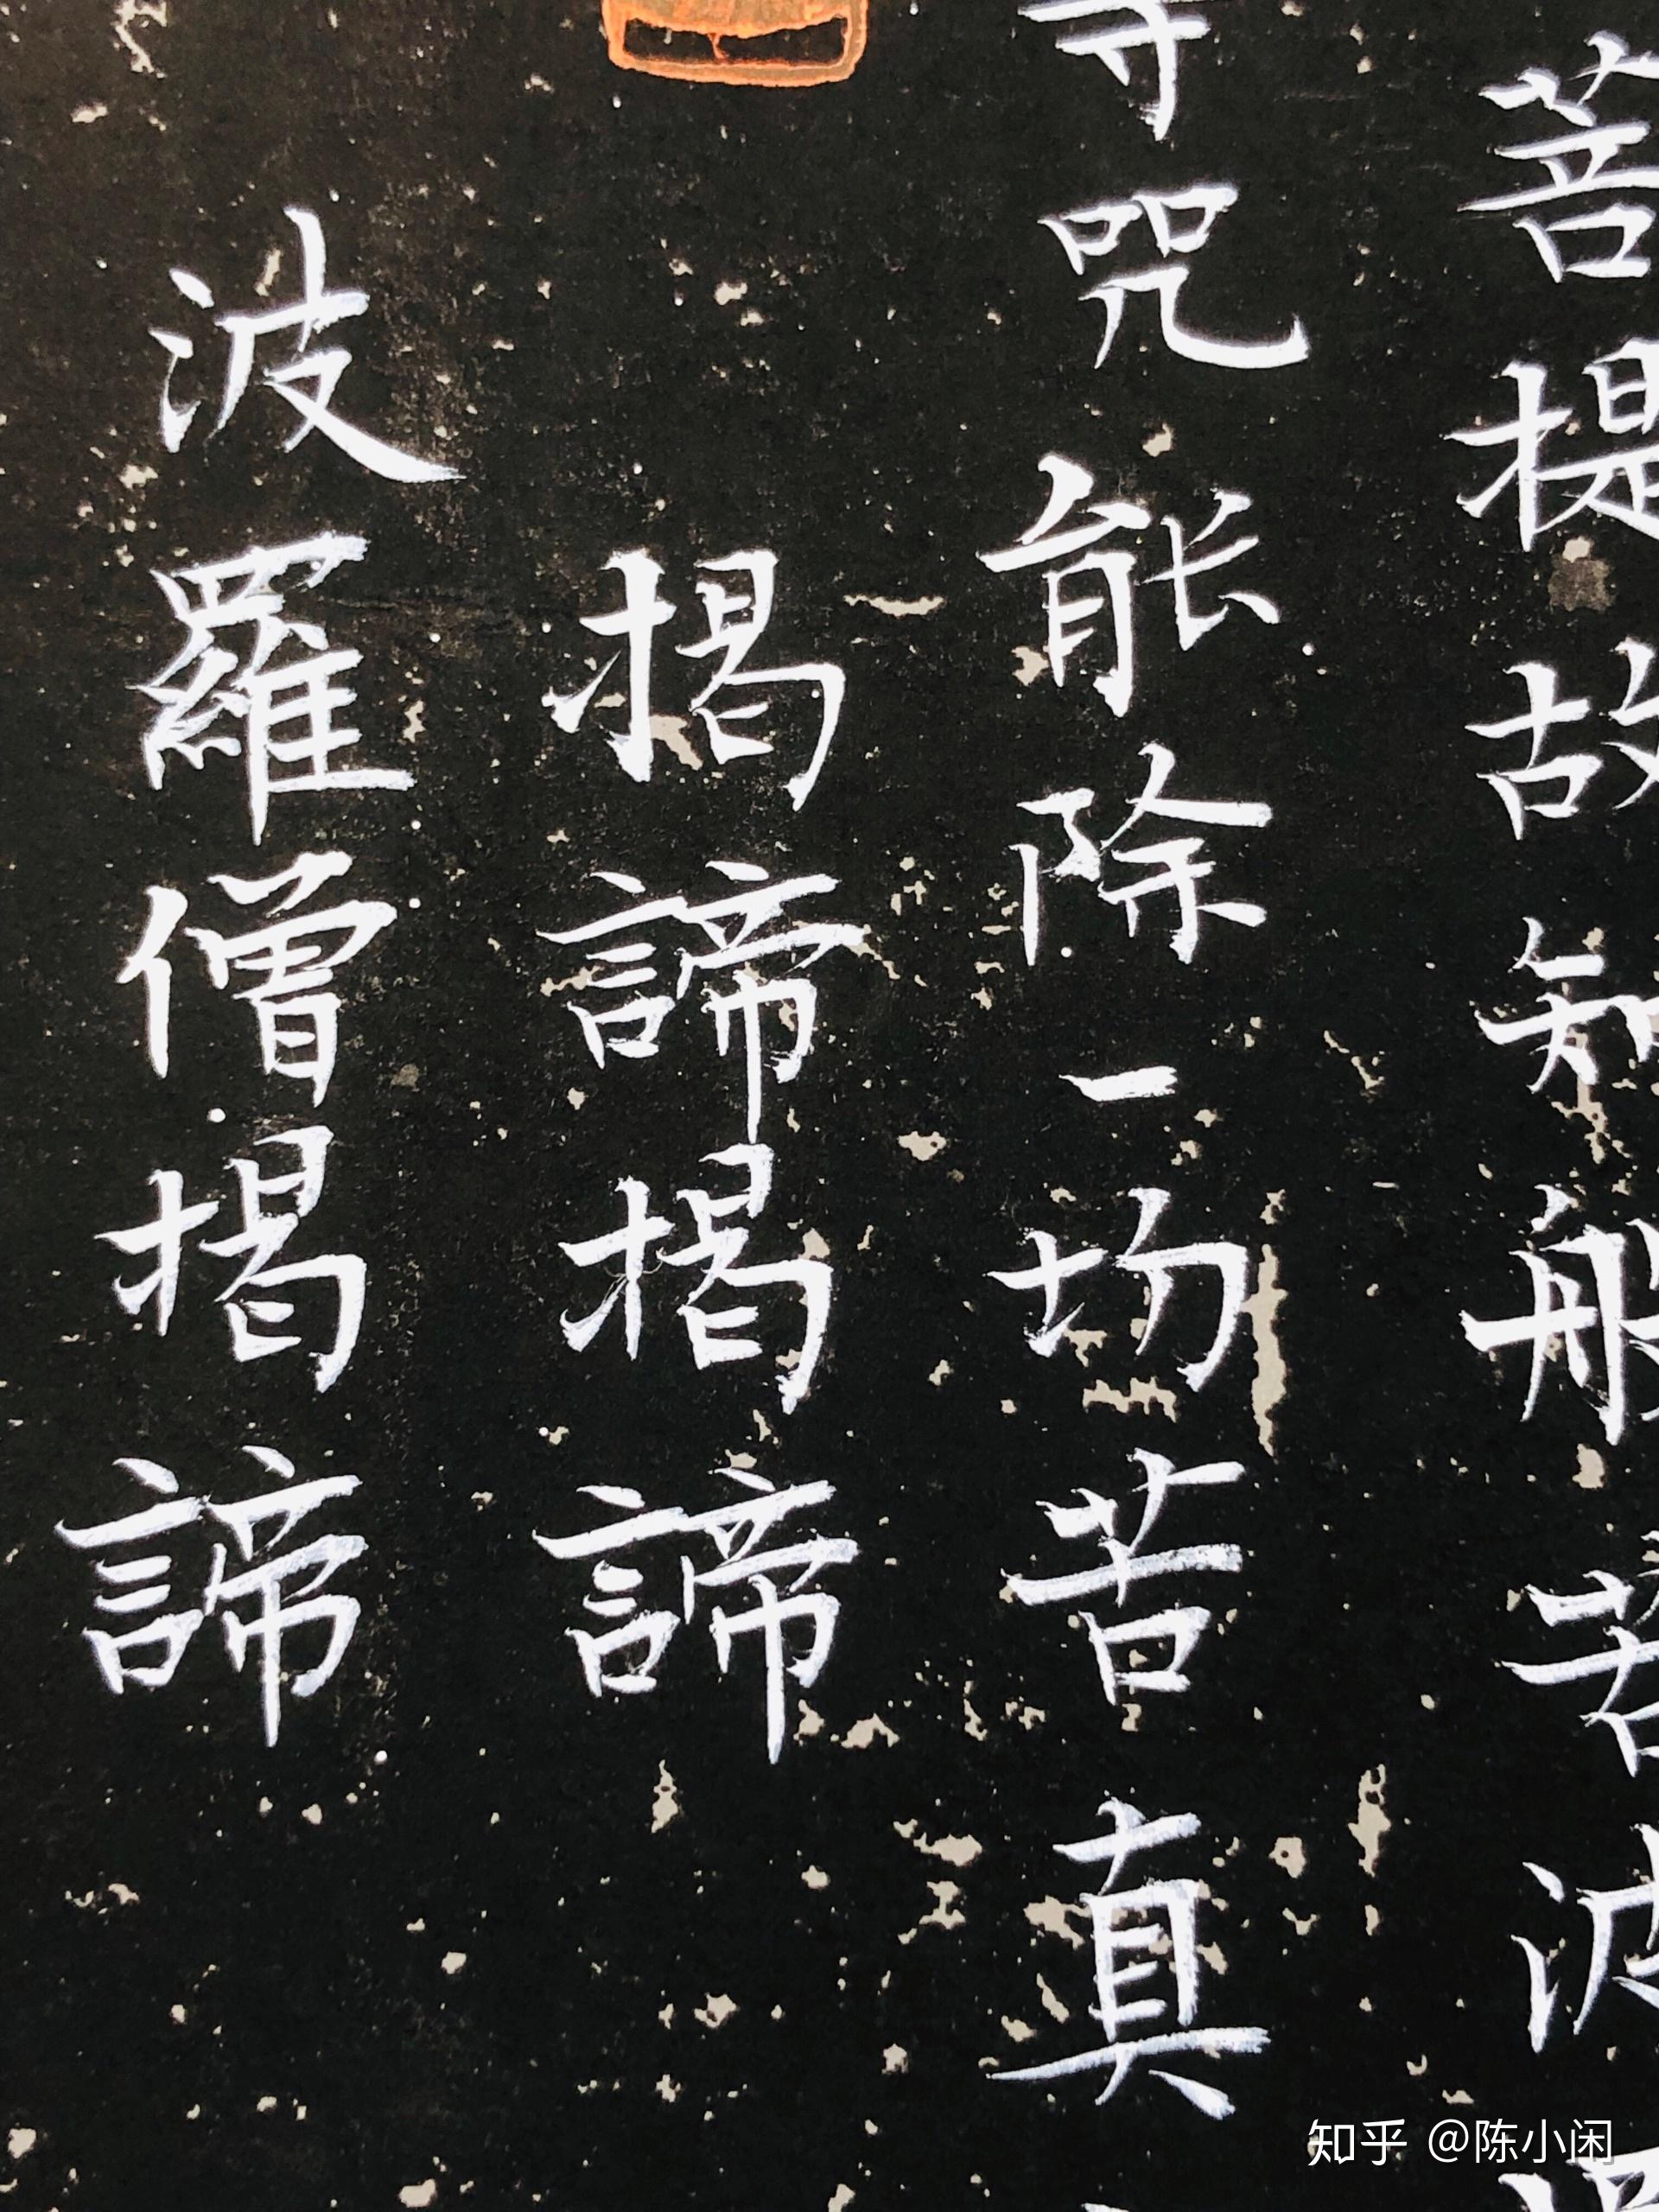 菩提故知般若波羅
等咒能除一切苦真
揭諦揭諦
波羅僧揭諦
知乎 @陈小闲